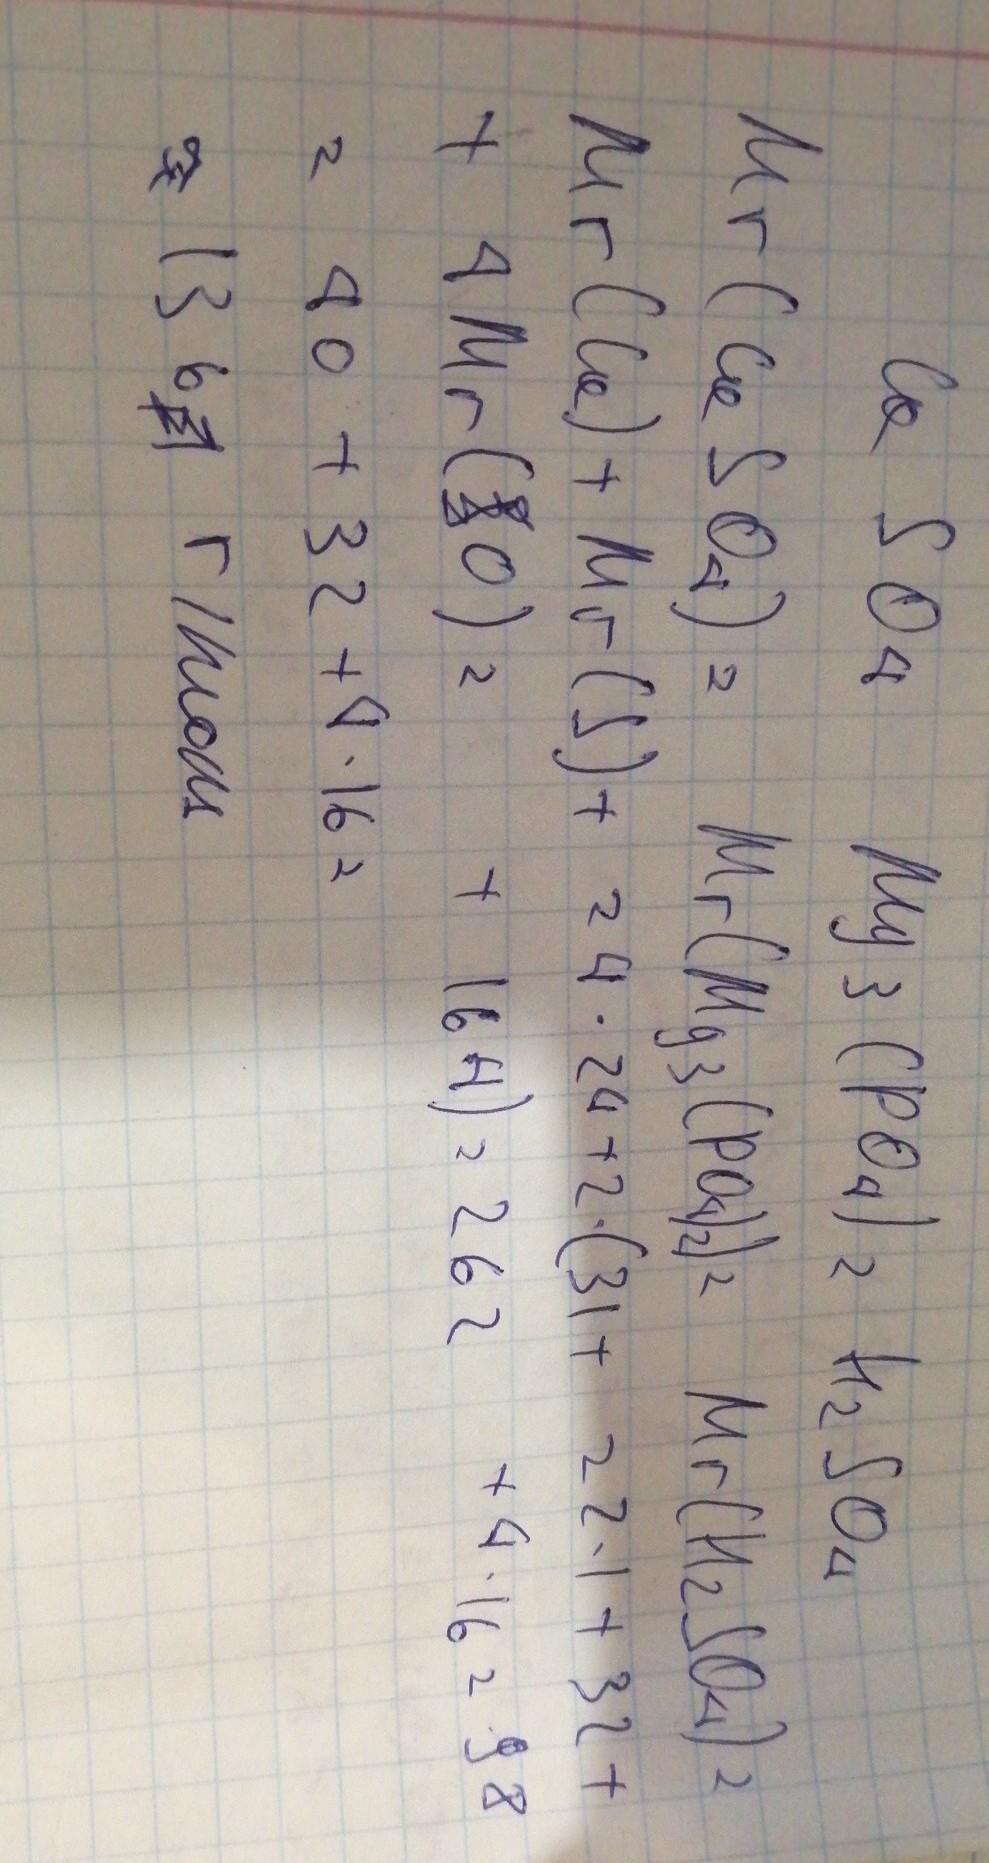 Ca SO4 Mg3(PO4)2 H2SO4
Mr(CaSO4)= Mr(Mg3(PO4)2)= Mr(H2SO4)=
Mr(Ca)+Mr(S)+ =4·24+2·(31+ =2·1+32+
+4Mr(O)= +164)=262 +4·16=98
=40+32+4·16=
=136 г/моль